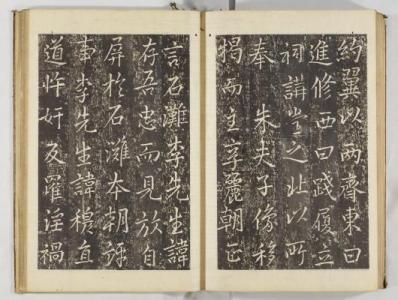 約翼以兩齋東曰
進修西曰踐履立
祠講堂之北以所
奉 朱夫子像移
揭而主享麗朝正
言石灘李先生諱
存吾忠而見放自
屏於石灘本朝評
事李先生諱穆直
道忤奸反罹淫禍